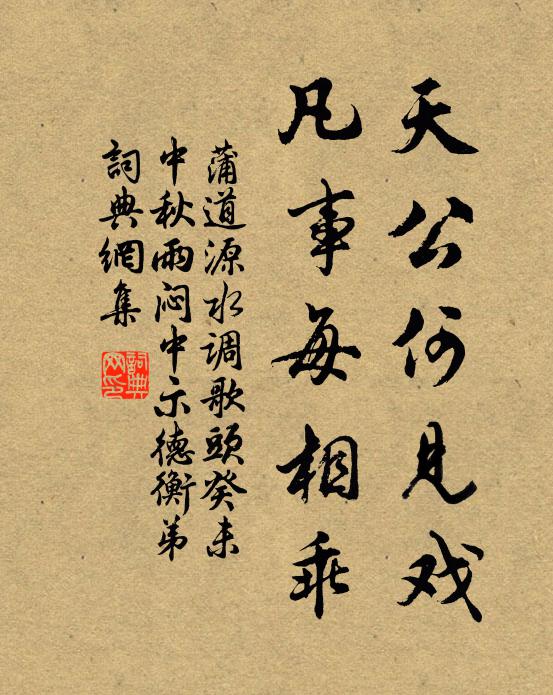 天公何见戏
凡事每相乖
蒲道源水调歌頭癸未
中秋雨闷中示德衡弟
詞典網集
詞典网印